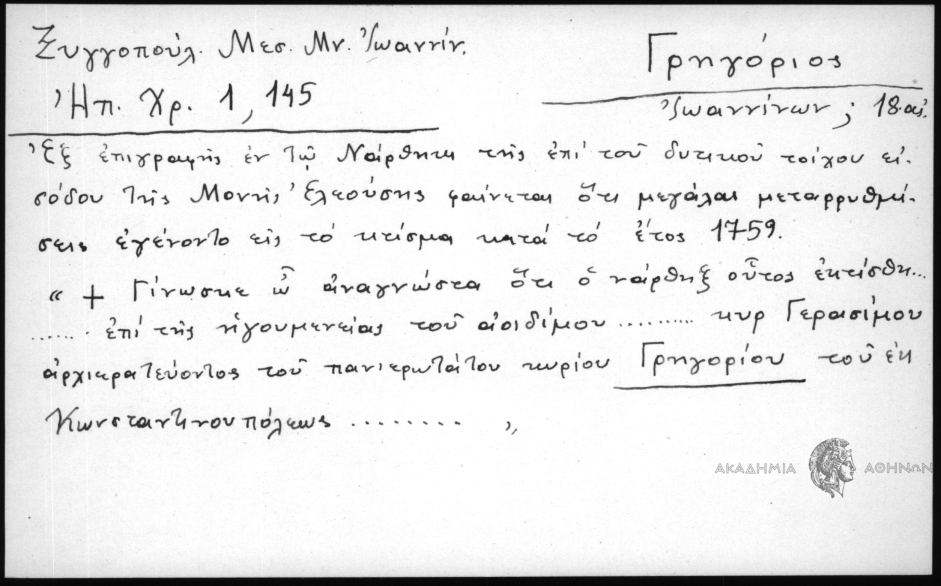 Ξυγγοπούλ. Μεσ. Μν. Ἰωαννίν.
Γρηγόριος
Ἠπ. Χρ. 1, 145
Ἰωαννίνων ; 18 αἰ.
Ἐξ ἐπιγραφῆς ἐν τῷ Νάρθηκι τῆς ἐπί τοῦ δυτικοῦ τοίχου εἰ-
σόδου τῆς Μονῆς Ἐλεούσης φαίνεται ὅτι μεγάλαι μεταρρυθμί-
σεις ἐγένοντο εἰς τό κτίσμα κατά τό ἔτος 1759.
" + Γίνωσκε ὦ ἀναγνῶστα ὅτι ὁ νάρθηξ οὗτος ἐκτίσθη...
...... ἐπί τῆς ἡγουμενείας τοῦ ἀοιδίμου ......... κυρ Γερασίμου
ἀρχιερατεύοντος τοῦ πανιερωτάτου κυρίου Γρηγορίου τοῦ ἐκ
Κωνσταντινουπόλεως ........ "
ΑΚΑΔΗΜΙΑ ΑΘΗΝΩΝ